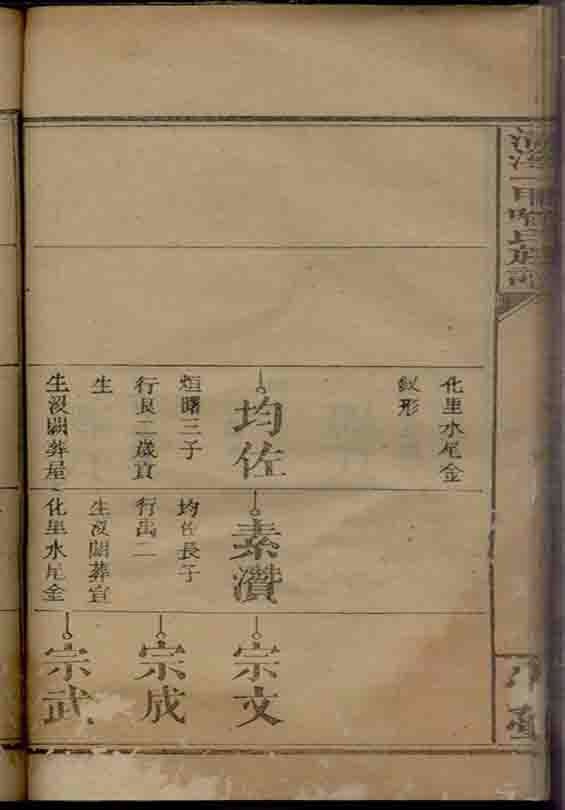 一甲喻氏族譜
化里水尾金
釵形
均佐
烜曙三子
行良二歲貢
生
生沒闕葬屋
素瓚
均佐長子
行禹二
生沒闕葬宣
化里水尾金
宗文
宗成
宗武